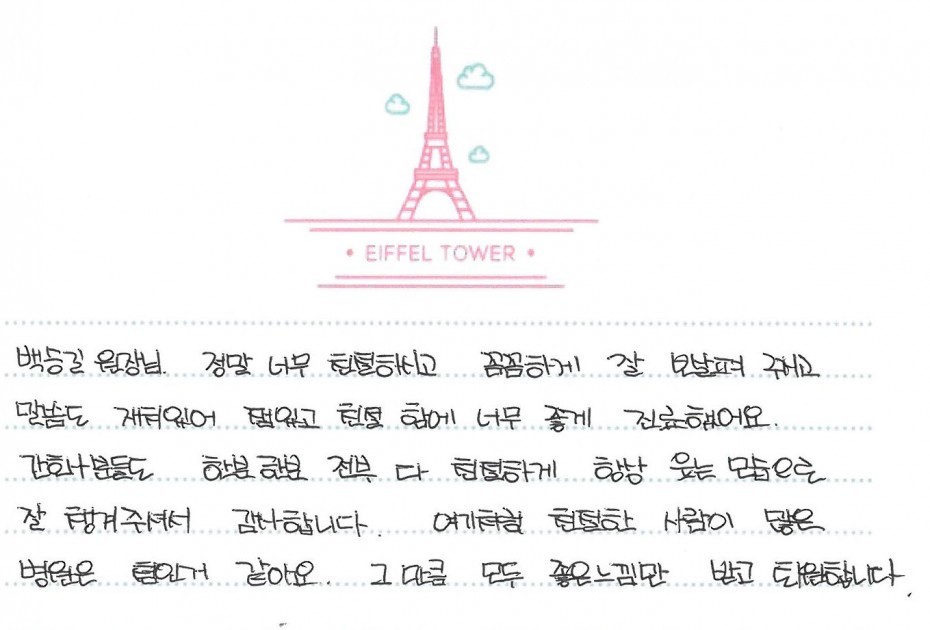 • EIFFEL TOWER •
백승길 원장님. 정말 너무 친절하시고 꼼꼼하게 잘 보살펴 주시고
말씀도 재치있어 재밌고 친절 함에 너무 좋게 진료했어요.
간호사분들도 한분 한분 전부 다 친절하게 항상 웃는 모습으로
잘 챙겨주셔서 감사합니다. 여기처럼 친절한 사람이 많은
병원은 처인거 같아요. 그 만큼 모두 좋은느낌만 받고 퇴원합니다.